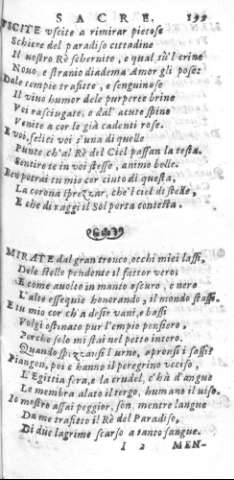 SACRE. 199
VSCITE vscite a rimirar pietose
Schiere del paradiso cittadine
Il nostro Rè schernito, e qual su'l crine
Nouo, e stranio diadema Amor gli pose:
Dale tempie trafitte, e sanguinose
Il viuo humor dele purpuree brine
Voi rasciugate, e dal' acute spine
Venite a cor lo già cadenti rose.
E voi, felici voi s'una di quelle
Punte ch'al Rè del Ciel passan la testa,
Sentirete in voi stesse, anime belle.
Ben potrai tu mio cor cinto di questa,
La corona sprezzar, che'l ciel di stelle,
E che di raggi il Sol porta contesta.
MIRATE dal gran tronco, occhi miei lassi,
Dele stelle pendente il fattor vero:
E come auolto in manto oscuro, e nero
L'alte essequie honorando, il mondo stassi.
E tu mio cor ch'a desir vani, e bassi
Volgi ostinato pur l'empio pensiero,
Perche solo mi stai nel petto intero,
Quando spezzansi l'urne, apronsi i sassi?
Piangon, poi e hanno il peregrino vcciso,
L'Egittia fera, e la crudel, c'hà d'angue
Le membra alato il tergo, humano il viso.
Io mostro assai peggior, son, mentre langue
Da me trafitto il Rè del Paradiso,
Di due lagrime scarso a tanto sangue.
I 2 MEN-